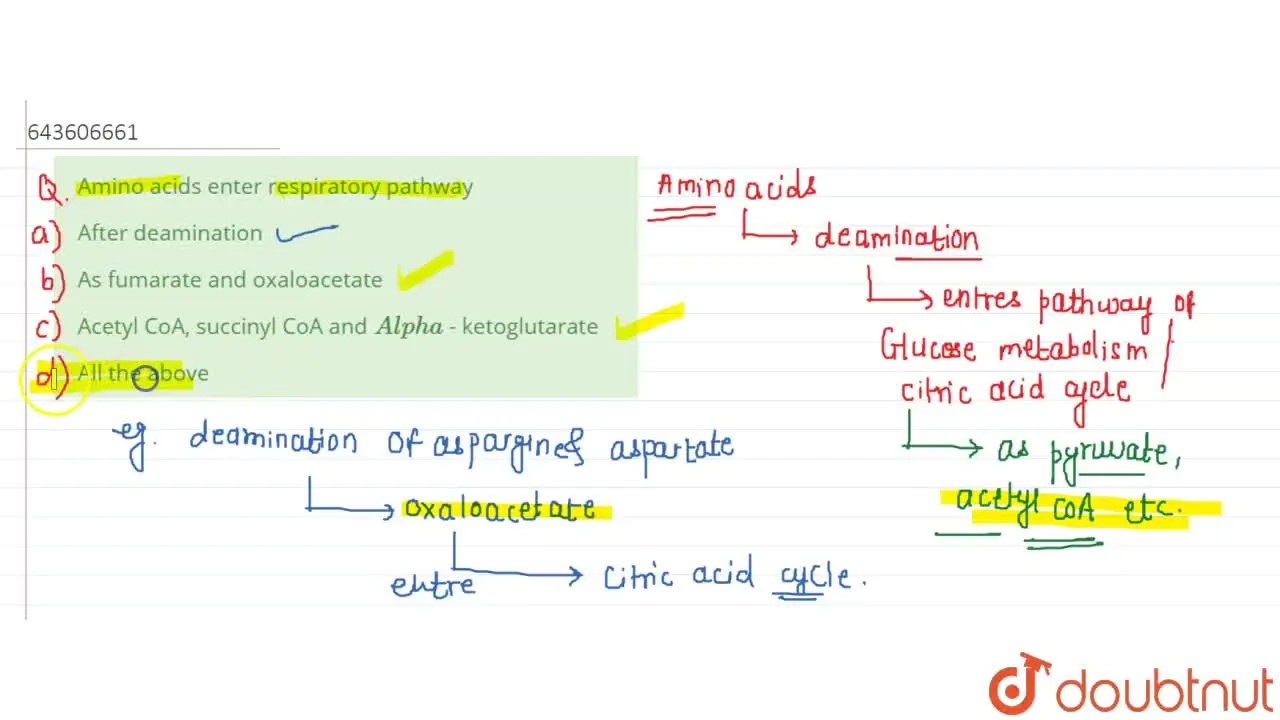 643606661
Q. Amino acids enter respiratory pathway
a) After deamination
b) As fumarate and oxaloacetate
c) Acetyl CoA, succinyl CoA and Alpha - ketoglutarate
d) All the above
Amino acids
deamination
entres pathway of
Glucose metabolism
citric acid cycle
as pyruvate,
acetyl CoA etc.
eg. deamination of aspargine & aspartate
oxaloacetate
entre citric acid cycle.
doubtnut